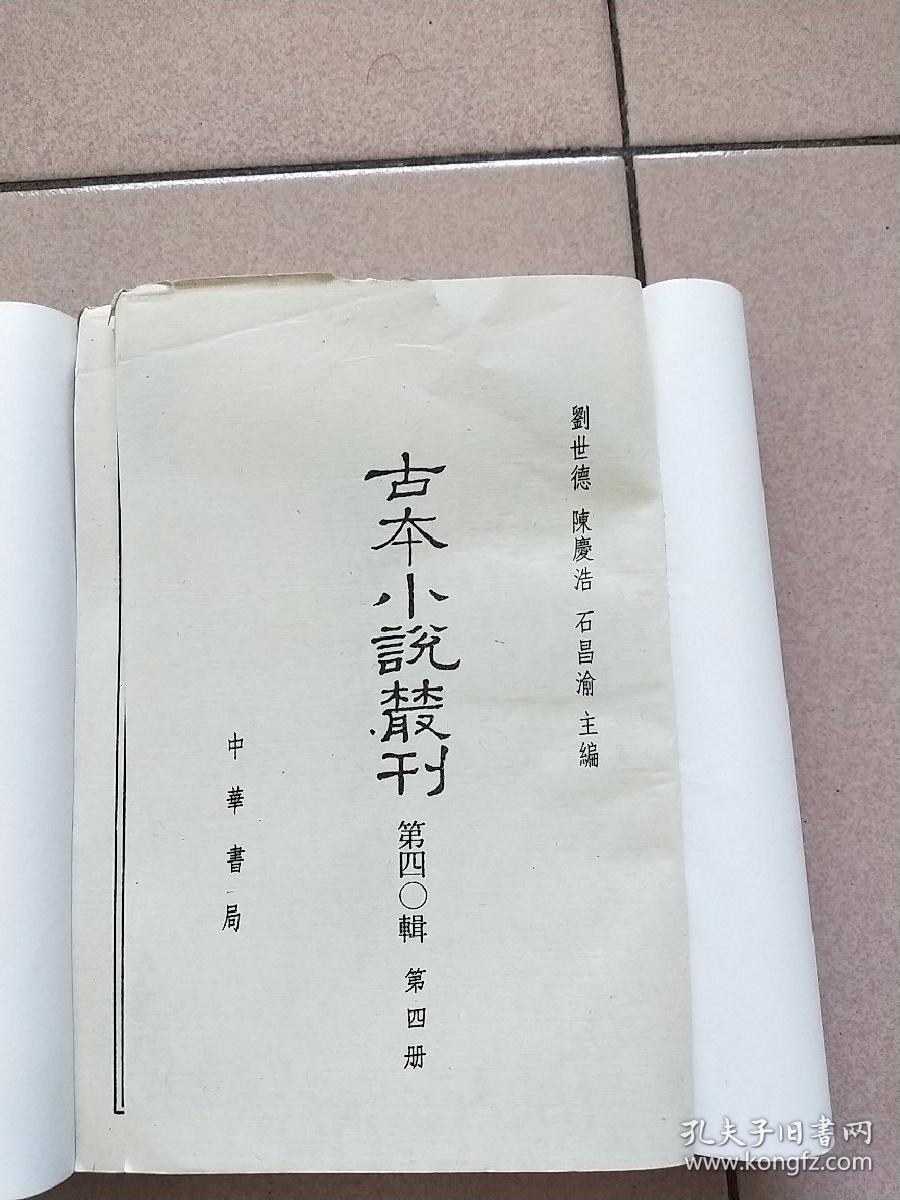 劉世德 陳慶浩 石昌渝 主編
古本小說叢刊 第四〇輯 第四册
中華書局
孔夫子旧書网
www.kongfz.com